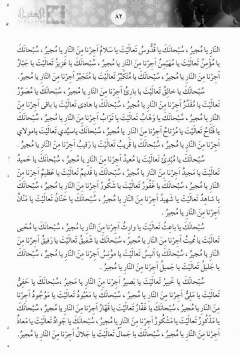 ٨٢
النَّارِ يَا مُجِيرُ، سُبْحَانَكَ يَا قُدُّوسُ تَعَالَيْتَ يَا سَلَامُ أَجِرْنَا مِنَ النَّارِ يَا مُجِيرُ، سُبْحَانَكَ
يَا مُؤْمِنُ تَعَالَيْتَ يَا مُهَيْمِنُ أَجِرْنَا مِنَ النَّارِ يَا مُجِيرُ، سُبْحَانَكَ يَا عَزِيزُ تَعَالَيْتَ يَا جَبَّارُ
أَجِرْنَا مِنَ النَّارِ يَا مُجِيرُ، سُبْحَانَكَ يَا مُتَكَبِّرُ تَعَالَيْتَ يَا مُتَجَبِّرُ أَجِرْنَا مِنَ النَّارِ يَا مُجِيرُ،
سُبْحَانَكَ يَا خَالِقُ تَعَالَيْتَ يَا بَارِئُ أَجِرْنَا مِنَ النَّارِ يَا مُجِيرُ، سُبْحَانَكَ يَا مُصَوِّرُ
تَعَالَيْتَ يَا مُقَدِّرُ أَجِرْنَا مِنَ النَّارِ يَا مُجِيرُ، سُبْحَانَكَ يَا هَادِي تَعَالَيْتَ يَا بَاقِي أَجِرْنَا مِنَ
النَّارِ يَا مُجِيرُ، سُبْحَانَكَ يَا وَهَّابُ تَعَالَيْتَ يَا تَوَّابُ أَجِرْنَا مِنَ النَّارِ يَا مُجِيرُ، سُبْحَانَكَ
يَا فَتَّاحُ تَعَالَيْتَ يَا مُرْتَاحُ أَجِرْنَا مِنَ النَّارِ يَا مُجِيرُ، سُبْحَانَكَ يَا سَيِّدِي تَعَالَيْتَ يَا مَوْلَايَ
أَجِرْنَا مِنَ النَّارِ يَا مُجِيرُ، سُبْحَانَكَ يَا قَرِيبُ تَعَالَيْتَ يَا رَقِيبُ أَجِرْنَا مِنَ النَّارِ يَا مُجِيرُ،
سُبْحَانَكَ يَا مُبْدِئُ تَعَالَيْتَ يَا مُعِيدُ أَجِرْنَا مِنَ النَّارِ يَا مُجِيرُ، سُبْحَانَكَ يَا حَمِيدُ
تَعَالَيْتَ يَا مَجِيدُ أَجِرْنَا مِنَ النَّارِ يَا مُجِيرُ، سُبْحَانَكَ يَا قَدِيمُ تَعَالَيْتَ يَا عَظِيمُ أَجِرْنَا مِنَ
النَّارِ يَا مُجِيرُ، سُبْحَانَكَ يَا غَفُورُ تَعَالَيْتَ يَا شَكُورُ أَجِرْنَا مِنَ النَّارِ يَا مُجِيرُ، سُبْحَانَكَ
يَا شَاهِدُ تَعَالَيْتَ يَا شَهِيدُ أَجِرْنَا مِنَ النَّارِ يَا مُجِيرُ، سُبْحَانَكَ يَا حَنَّانُ تَعَالَيْتَ يَا مَنَّانُ
أَجِرْنَا مِنَ النَّارِ يَا مُجِيرُ.
سُبْحَانَكَ يَا بَاعِثُ تَعَالَيْتَ يَا وَارِثُ أَجِرْنَا مِنَ النَّارِ يَا مُجِيرُ، سُبْحَانَكَ يَا مُحْيِي
تَعَالَيْتَ يَا مُمِيتُ أَجِرْنَا مِنَ النَّارِ يَا مُجِيرُ، سُبْحَانَكَ يَا شَفِيقُ تَعَالَيْتَ يَا رَفِيقُ أَجِرْنَا
مِنَ النَّارِ يَا مُجِيرُ، سُبْحَانَكَ يَا أَنِيسُ تَعَالَيْتَ يَا مُؤْنِسُ أَجِرْنَا مِنَ النَّارِ يَا مُجِيرُ، سُبْحَانَكَ
يَا جَلِيلُ تَعَالَيْتَ يَا جَمِيلُ أَجِرْنَا مِنَ النَّارِ يَا مُجِيرُ.
سُبْحَانَكَ يَا خَبِيرُ تَعَالَيْتَ يَا بَصِيرُ أَجِرْنَا مِنَ النَّارِ يَا مُجِيرُ، سُبْحَانَكَ يَا حَفِيُّ
تَعَالَيْتَ يَا مَلِيُّ أَجِرْنَا مِنَ النَّارِ يَا مُجِيرُ، سُبْحَانَكَ يَا مَعْبُودُ تَعَالَيْتَ يَا مَوْجُودُ أَجِرْنَا
مِنَ النَّارِ يَا مُجِيرُ، سُبْحَانَكَ يَا غَفَّارُ تَعَالَيْتَ يَا قَهَّارُ أَجِرْنَا مِنَ النَّارِ يَا مُجِيرُ، سُبْحَانَكَ
يَا مَذْكُورُ تَعَالَيْتَ يَا مَشْكُورُ أَجِرْنَا مِنَ النَّارِ يَا مُجِيرُ، سُبْحَانَكَ يَا جَوَادُ تَعَالَيْتَ يَا مَعَاذُ
أَجِرْنَا مِنَ النَّارِ يَا مُجِيرُ، سُبْحَانَكَ يَا جَمَالُ تَعَالَيْتَ يَا جَلَالُ أَجِرْنَا مِنَ النَّارِ يَا مُجِيرُ،